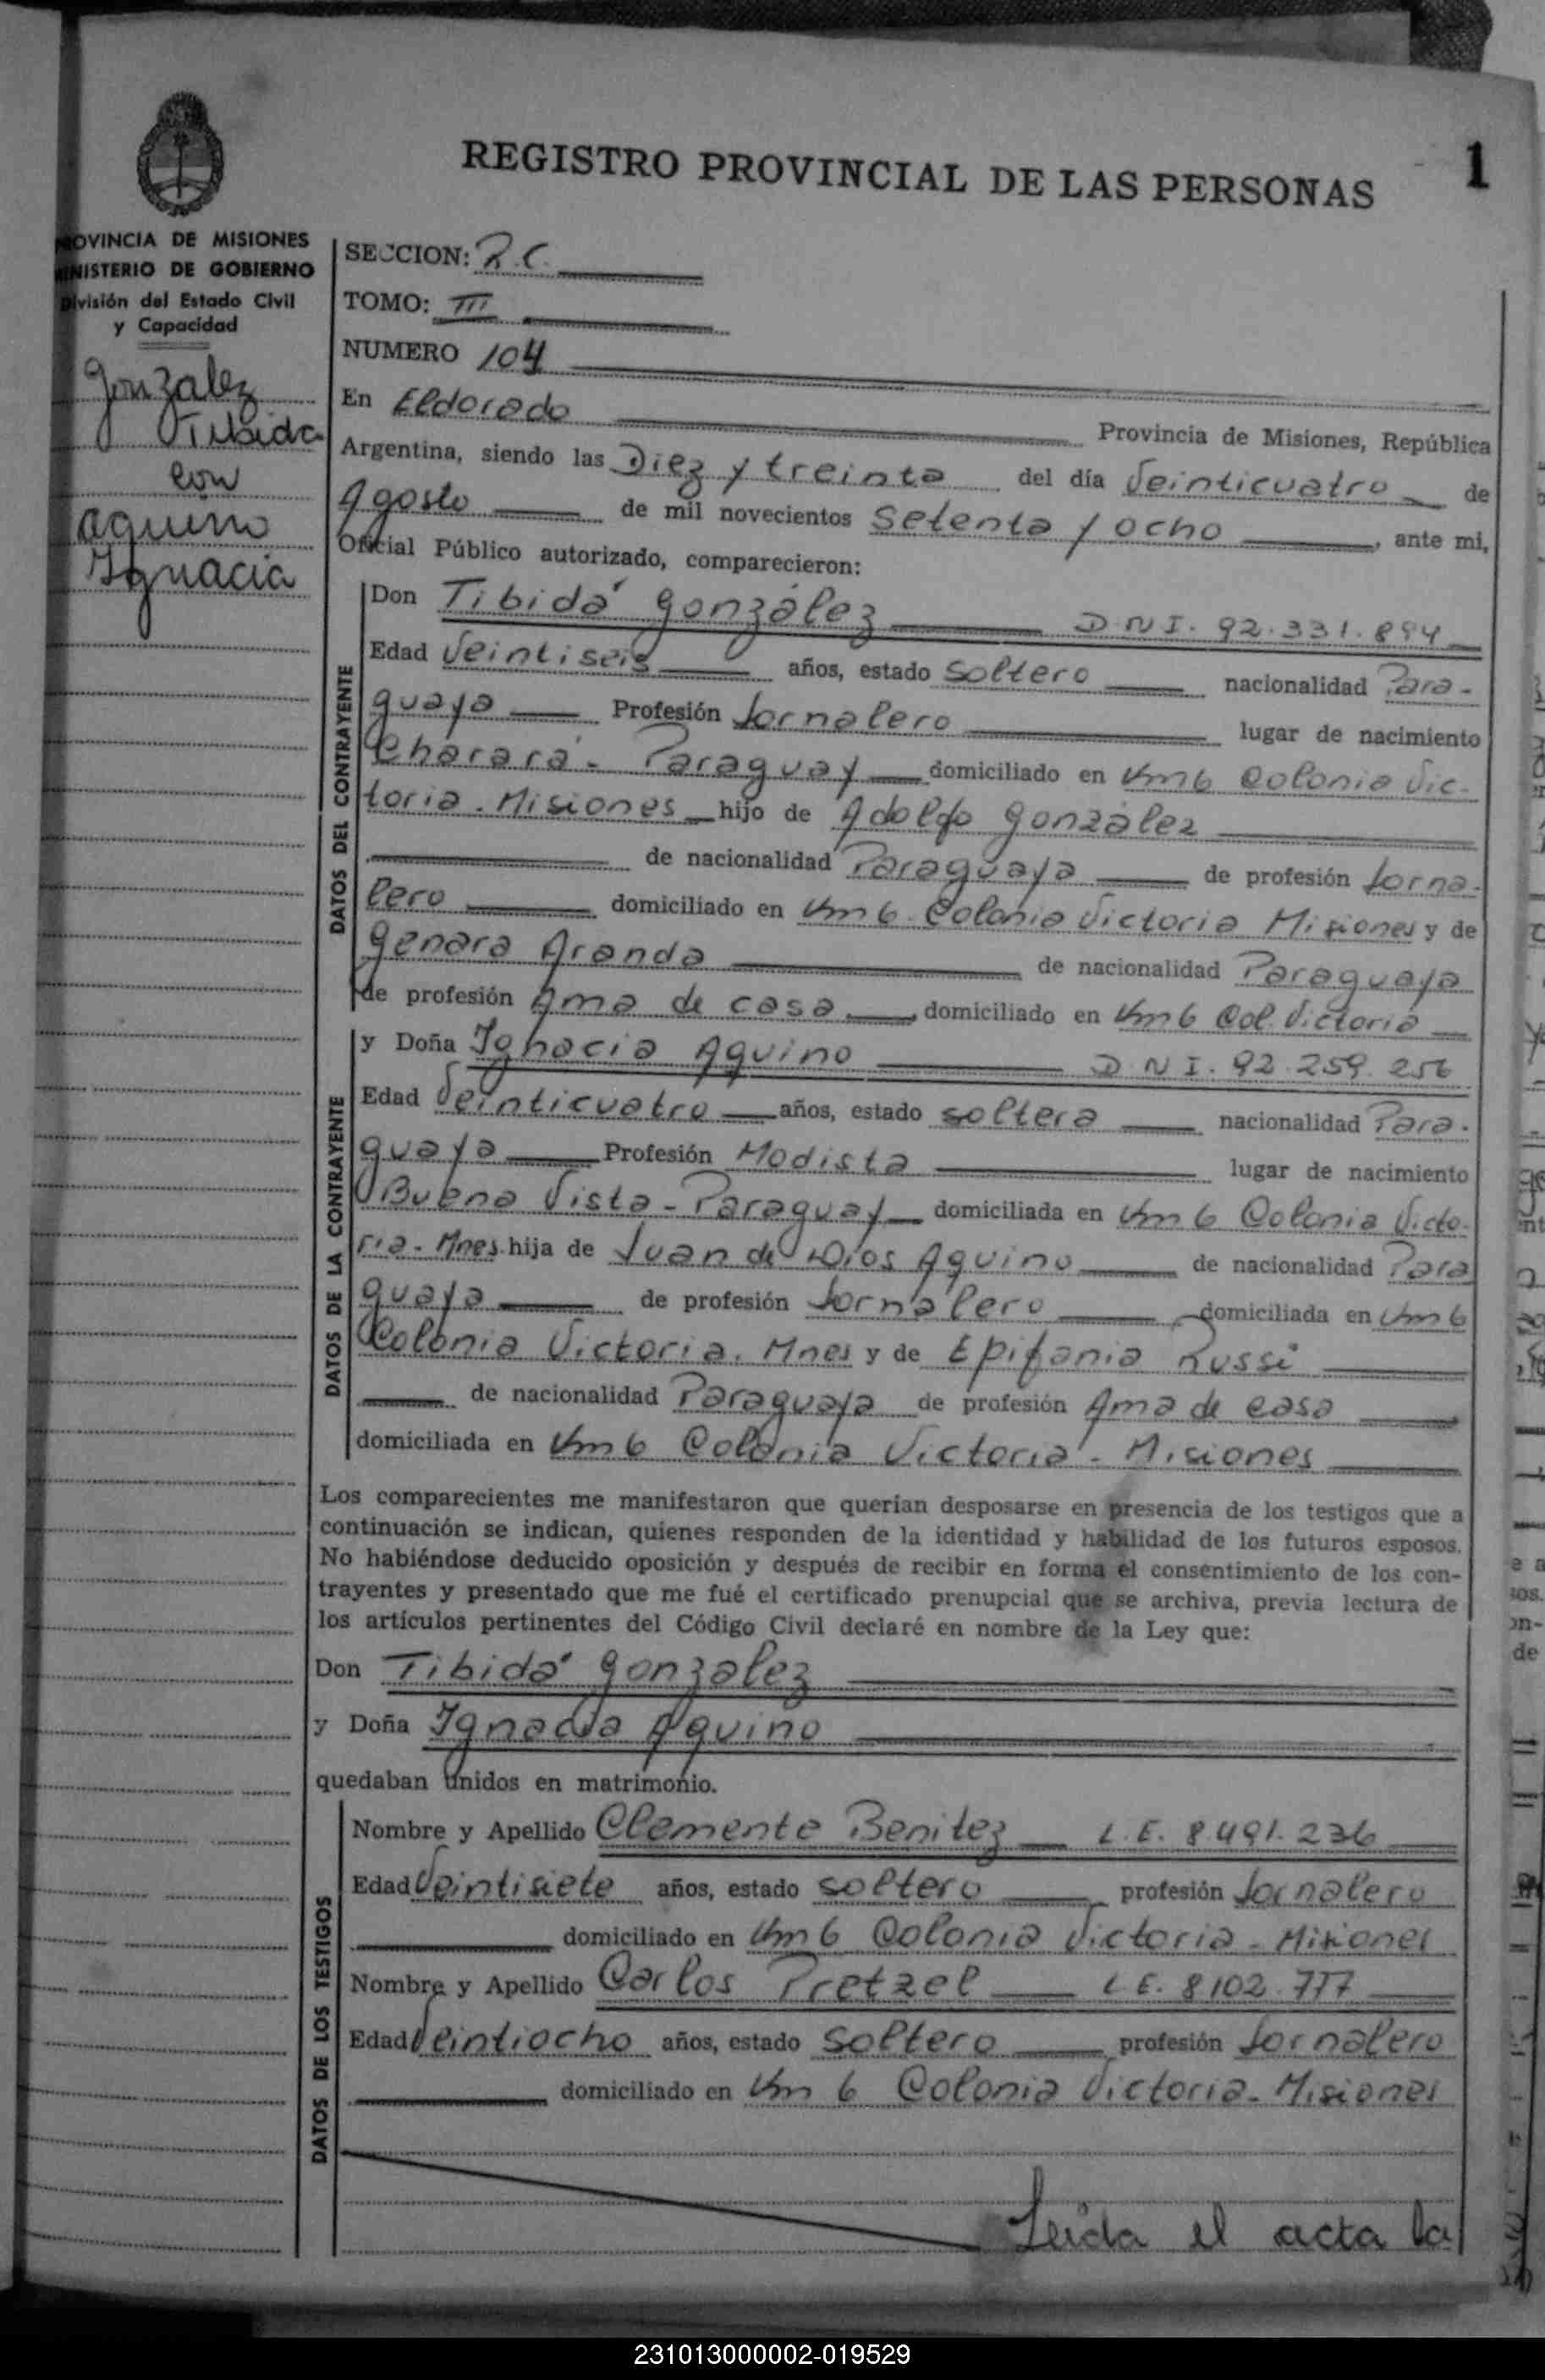 REGISTRO PROVINCIAL DE LAS PERSONAS
1
PROVINCIA DE MISIONES
MINISTERIO DE GOBIERNO
División del Estado Civil
y Capacidad
Gonzalez
Tibida
con
Aquino
Ignacia
SECCION: R.C.
TOMO: III
NUMERO 104
En Eldorado Provincia de Misiones, República
Argentina, siendo las Diez y treinta del día Veinticuatro de
Agosto de mil novecientos Setenta y ocho, ante mi,
Oficial Público autorizado, comparecieron:
DATOS DEL CONTRAYENTE
Don Tibidá González D.N.I. 92.331.894
Edad Veintiseis años, estado Soltero nacionalidad Para-
guaya Profesión Jornalero lugar de nacimiento
Chararà - Paraguay domiciliado en Km 6 Colonia Vic-
toria. Misiones hijo de Adolfo González
de nacionalidad Paraguaya de profesión Jorna-
lero domiciliado en Km 6. Colonia Victoria Misiones y de
Genara Aranda de nacionalidad Paraguaya
de profesión Ama de casa domiciliado en Km 6 Col. Victoria
DATOS DE LA CONTRAYENTE
y Doña Ignacia Aquino D.N.I. 92.259.256
Edad Veinticuatro años, estado soltera nacionalidad Para-
guaya Profesión Modista lugar de nacimiento
Buena Vista - Paraguay domiciliada en Km 6 Colonia Victo-
ria. Mnes. hija de Juan de Dios Aquino de nacionalidad Para
guaya de profesión Jornalero domiciliada en Km 6
Colonia Victoria. Mnes y de Epifania Russi
de nacionalidad Paraguaya de profesión Ama de casa
domiciliada en Km 6 Colonia Victoria - Misiones
Los comparecientes me manifestaron que querían desposarse en presencia de los testigos que a
continuación se indican, quienes responden de la identidad y habilidad de los futuros esposos.
No habiéndose deducido oposición y después de recibir en forma el consentimiento de los con-
trayentes y presentado que me fué el certificado prenupcial que se archiva, previa lectura de
los artículos pertinentes del Código Civil declaré en nombre de la Ley que:
Don Tibidá Gonzalez
y Doña Ignacia Aquino
quedaban unidos en matrimonio.
DATOS DE LOS TESTIGOS
Nombre y Apellido Clemente Benitez L.E. 8.491.236
Edad Veintisiete años, estado soltero profesión Jornalero
domiciliado en Km 6 Colonia Victoria - Misiones
Nombre y Apellido Carlos Pretzel L.E. 8.102.777
Edad Veintiocho años, estado Soltero profesión Jornalero
domiciliado en Km 6 Colonia Victoria - Misiones
Leida el acta la
231013000002-019529